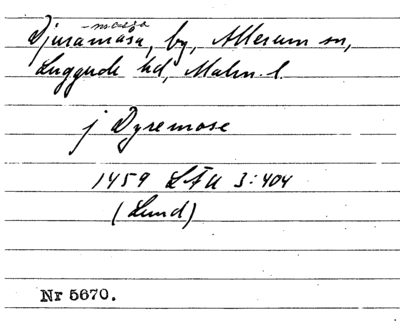 -massa
Djuramåsa, by, Allerum sn,
Luggude hd, Malm. l.
j Dyremose
1459 LÄU 3:404
(Lund)
Nr 5670.